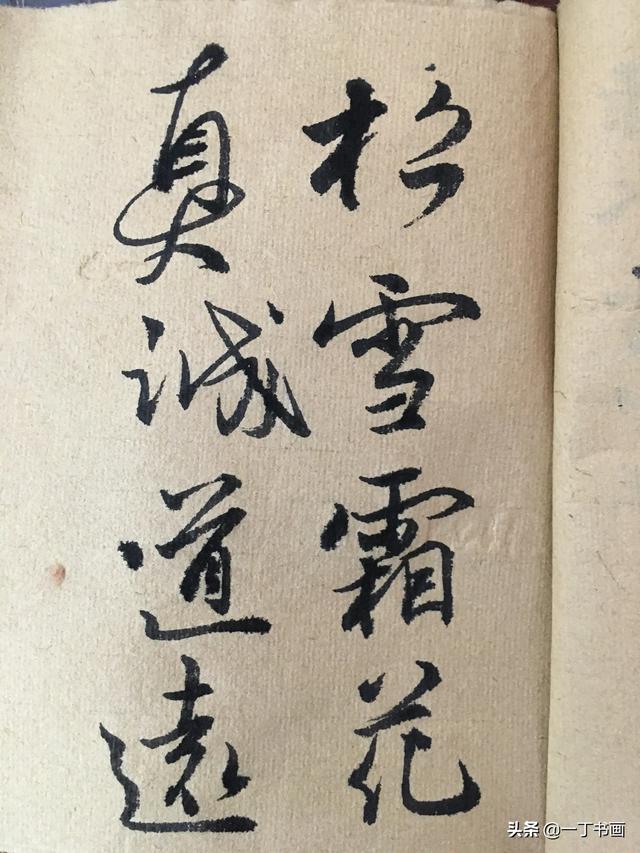 松雪霜花
真誠道遠
头条 @一丁书画